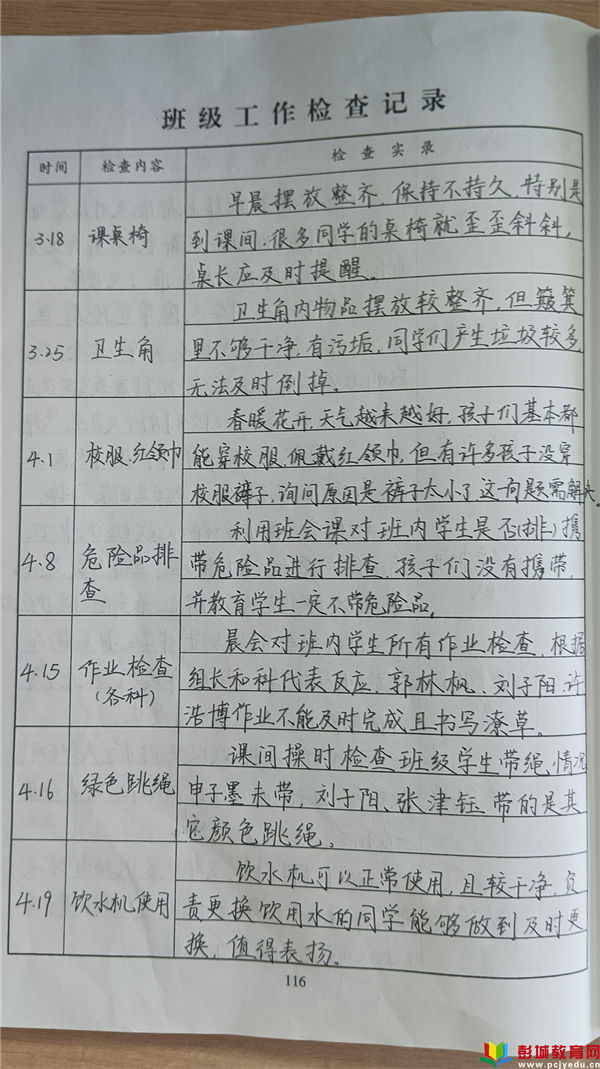 班级工作检查记录
时间 检查内容 检查实录
早晨摆放整齐，保持不持久，特别是
3.18 课桌椅 到课间，很多同学的桌椅就歪歪斜斜，
桌长应及时提醒。
卫生角内物品摆放较整齐，但簸箕
3.25 卫生角 里不够干净，有污垢，同学们产生垃圾较多，
无法及时倒掉。
春暖花开，天气越来越好，孩子们基本都
4.1 校服、红领巾 能穿校服、佩戴红领巾，但有许多孩子没穿
校服裤子，询问原因是裤子太小了，这一问题需解决。
利用班会课对班内学生是否(排)携
4.8 危险品排查 带危险品进行排查，孩子们没有携带，
并教育学生一定不带危险品。
晨会对班内学生所有作业检查，根据
4.15 作业检查 组长和科代表反应，郭林枫、刘子阳、许
(各科) 浩博作业不能及时完成且书写潦草。
课间操时检查班级学生带绳，情况
4.16 绿色跳绳 申子墨未带，刘子阳、张津钰带的是其
它颜色跳绳。
饮水机可以正常使用，且较干净，负
4.19 饮水机使用 责更换饮用水的同学能够做到及时更
换，值得表扬。
116
彭城教育网
www.pcjyedu.cn